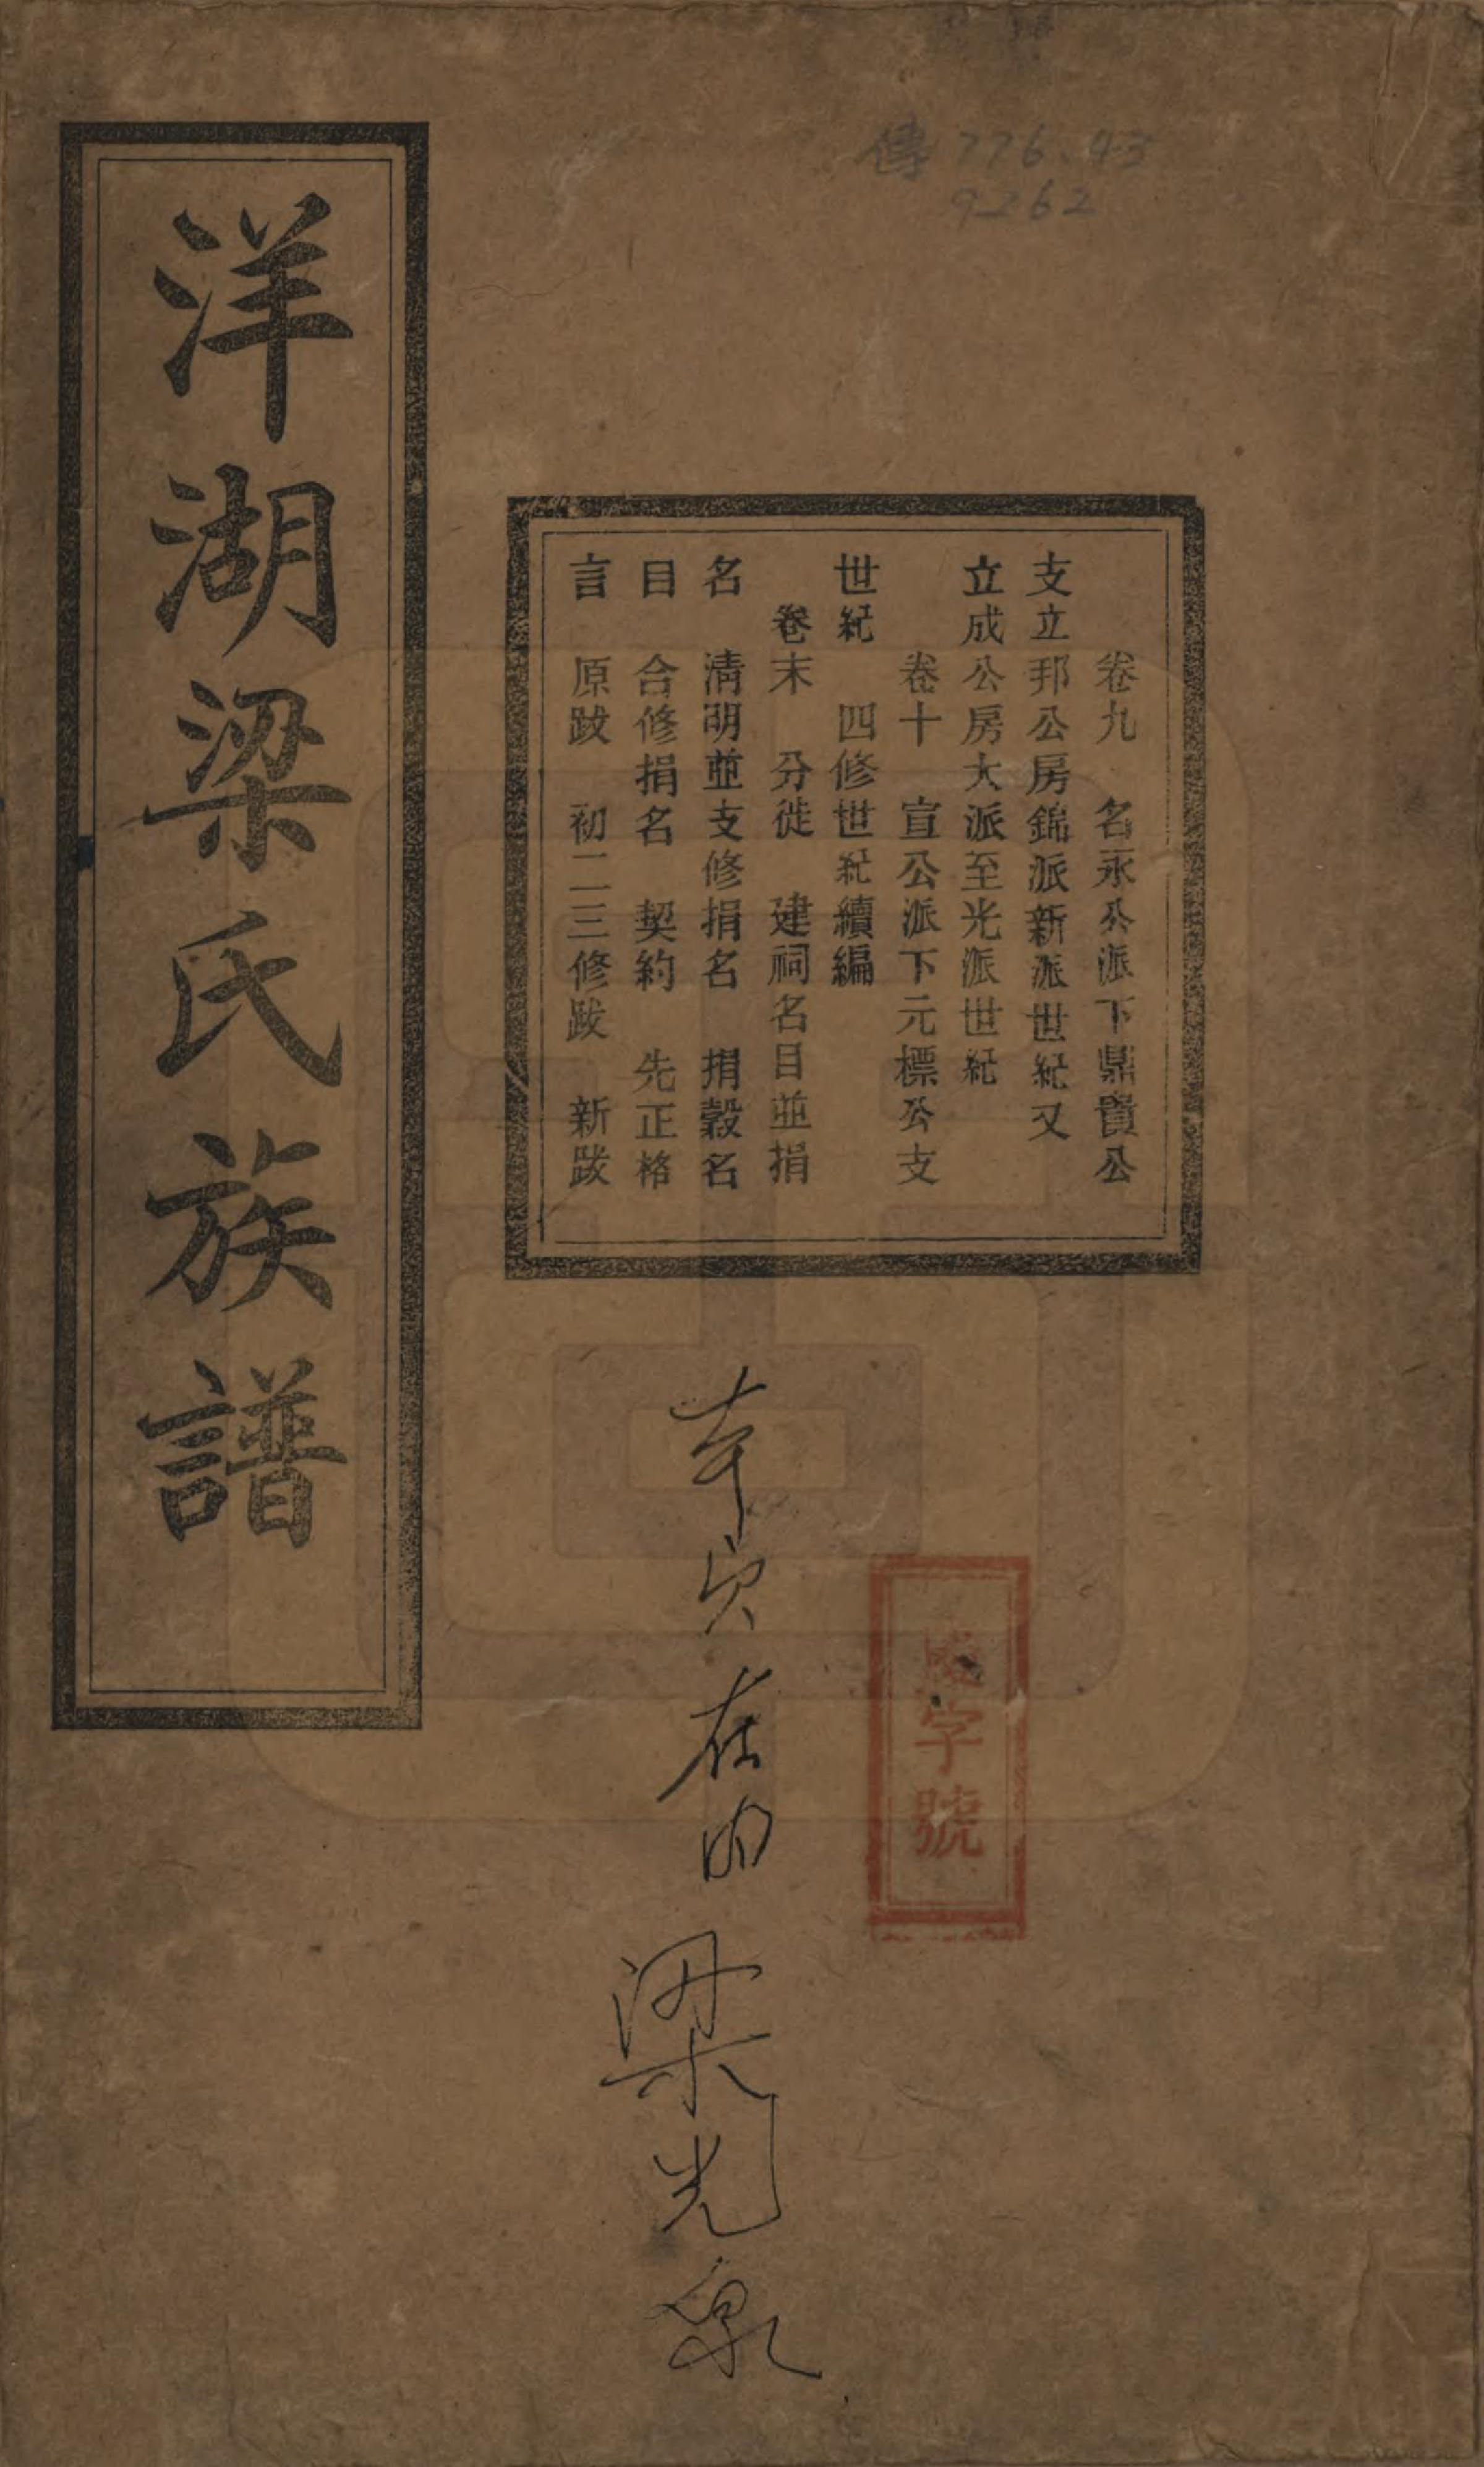 傳 776.43
9262
卷九　名永公派下鼎貴公
支立邦公房錦派新派世紀又
立成公房大派至光派世紀
卷十　宣公派下元標公支
世紀　四修世紀續編
卷末　分徙　建祠名目並捐
名　清明並支修捐名　捐穀名
目　合修捐名　契約　先正格
言　原跋　初二三修跋　新跋
洋湖梁氏族譜
字號
在内
梁光泉